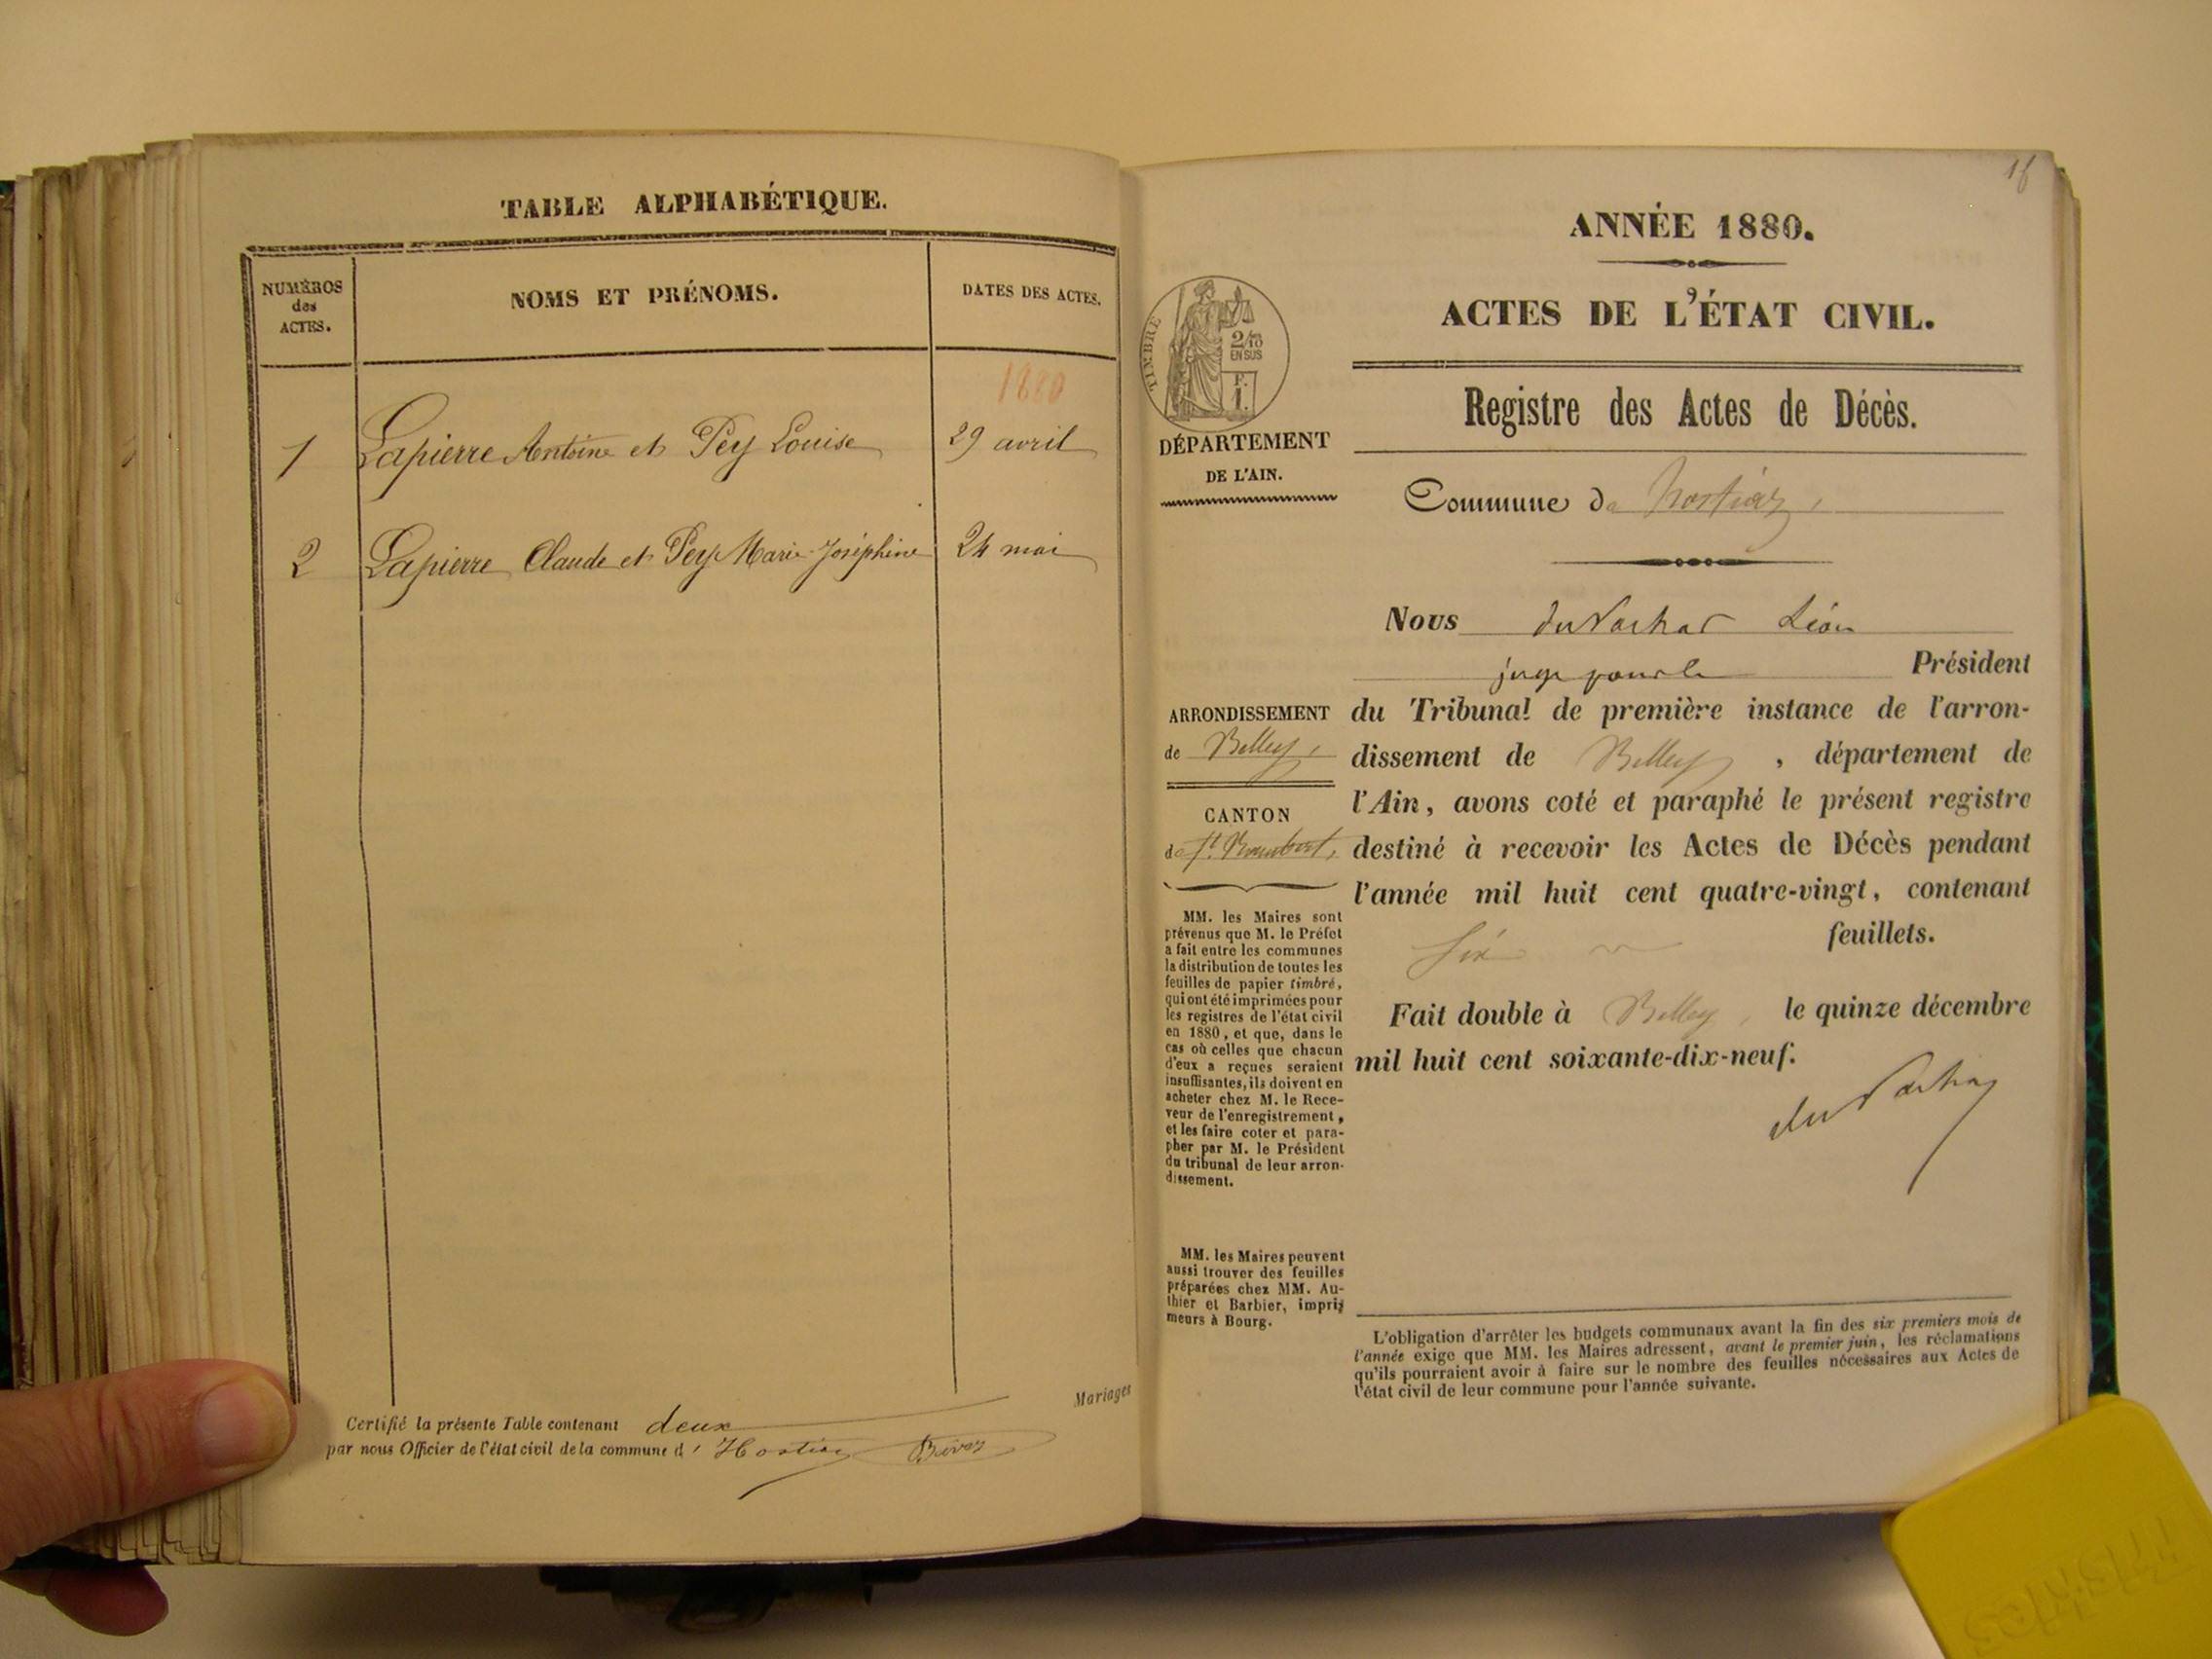 TABLE ALPHABÉTIQUE.
NUMÉROS
des
ACTES.
NOMS ET PRÉNOMS.
DATES DES ACTES.
1880
1 Lapierre Antoine et Pey Louise 29 avril
2 Lapierre Claude et Pey Marie-Joséphine 24 mai
Certifié la présente Table contenant deux
par nous Officier de l'état civil de la commune d' Hostiaz
Mariages
18
ANNÉE 1880.
ACTES DE L'ÉTAT CIVIL.
TIMBRE
2/10
EN SUS
F.
1.
DÉPARTEMENT
DE L'AIN.
Registre des Actes de Décès.
Commune de hostiaz,
Nous Léon
juge pour le Président
du Tribunal de première instance de l'arron-
dissement de Belley, département de
l'Ain, avons coté et paraphé le présent registre
destiné à recevoir les Actes de Décès pendant
l'année mil huit cent quatre-vingt, contenant
six feuillets.
Fait double à Belley, le quinze décembre
mil huit cent soixante-dix-neuf.
ARRONDISSEMENT
de Belley,
CANTON
de St. Rambert,
MM. les Maires sont
prévenus que M. le Préfet
a fait entre les communes
la distribution de toutes les
feuilles de papier timbré,
qui ont été imprimées pour
les registres de l'état civil
en 1880, et que, dans le
cas où celles que chacun
d'eux a reçues seraient
insuffisantes, ils doivent en
acheter chez M. le Rece-
veur de l'enregistrement,
et les faire coter et para-
pher par M. le Président
du tribunal de leur arron-
dissement.
MM. les Maires peuvent
aussi trouver des feuilles
préparées chez MM. Au-
thier et Barbier, impri-
meurs à Bourg.
L'obligation d'arrêter les budgets communaux avant la fin des six premiers mois de
l'année exige que MM. les Maires adressent, avant le premier juin, les réclamations
qu'ils pourraient avoir à faire sur le nombre des feuilles nécessaires aux Actes de
l'état civil de leur commune pour l'année suivante.